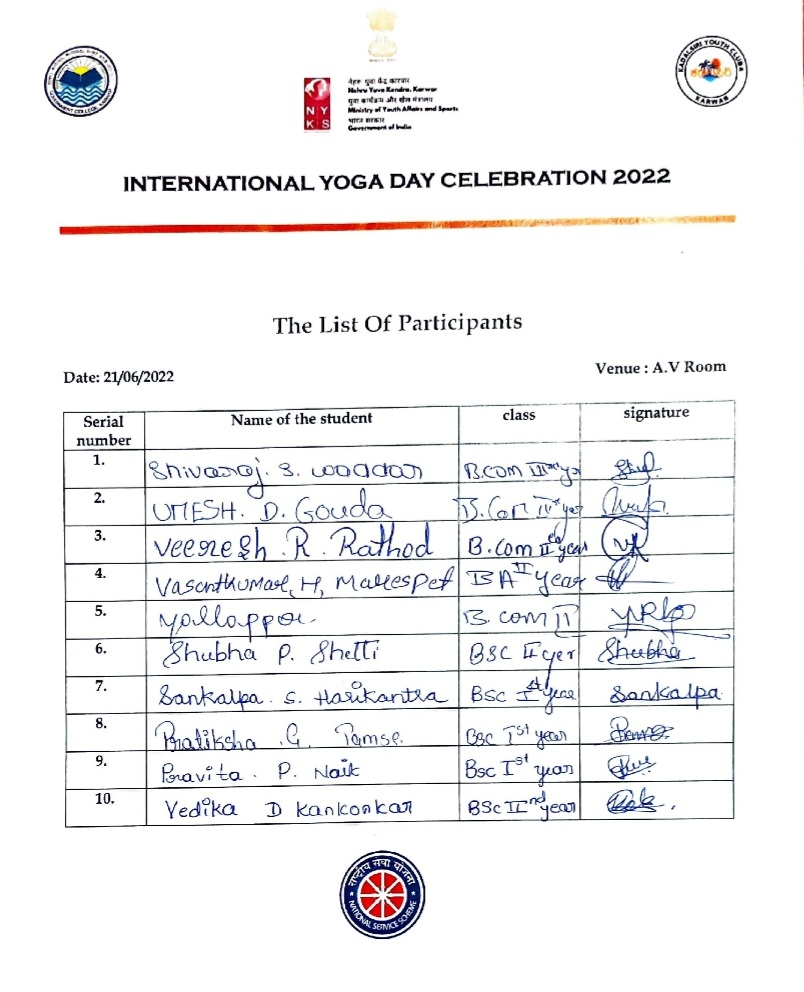 नेहरू युवा केंद्र कारवार
Nehru Yuva Kendra, Karwar
युवा कार्यक्रम और खेल मंत्रालय
Ministry of Youth Affairs and Sports
भारत सरकार
Government of India
NY
KS
KADALSIRI YOUTH CLUB
KARWAR
INTERNATIONAL YOGA DAY CELEBRATION 2022
The List Of Participants
Date: 21/06/2022 Venue : A.V Room
Serial number Name of the student class signature
1. Shivaraj. S. Waddar B.COM year
2. UMESH. D. Gouda B.Com year
3. Veeresh .R. Rathod B.Com IInd year
4. Vasanthkumar, H, Mallespet BA II year
5. Yallappa. B. com II
6. Shubha P. Shetti BSC II yer Shubha
7. Sankalpa. S. Harikantra BSC Ist year Sankalpa
8. Pratiksha .G. Tamse. Bsc Ist year
9. Pravita . P. Naik Bsc Ist year
10. Vedika D Kankonkar BSc IInd year
राष्ट्रीय सेवा योजना
NATIONAL SERVICE SCHEME